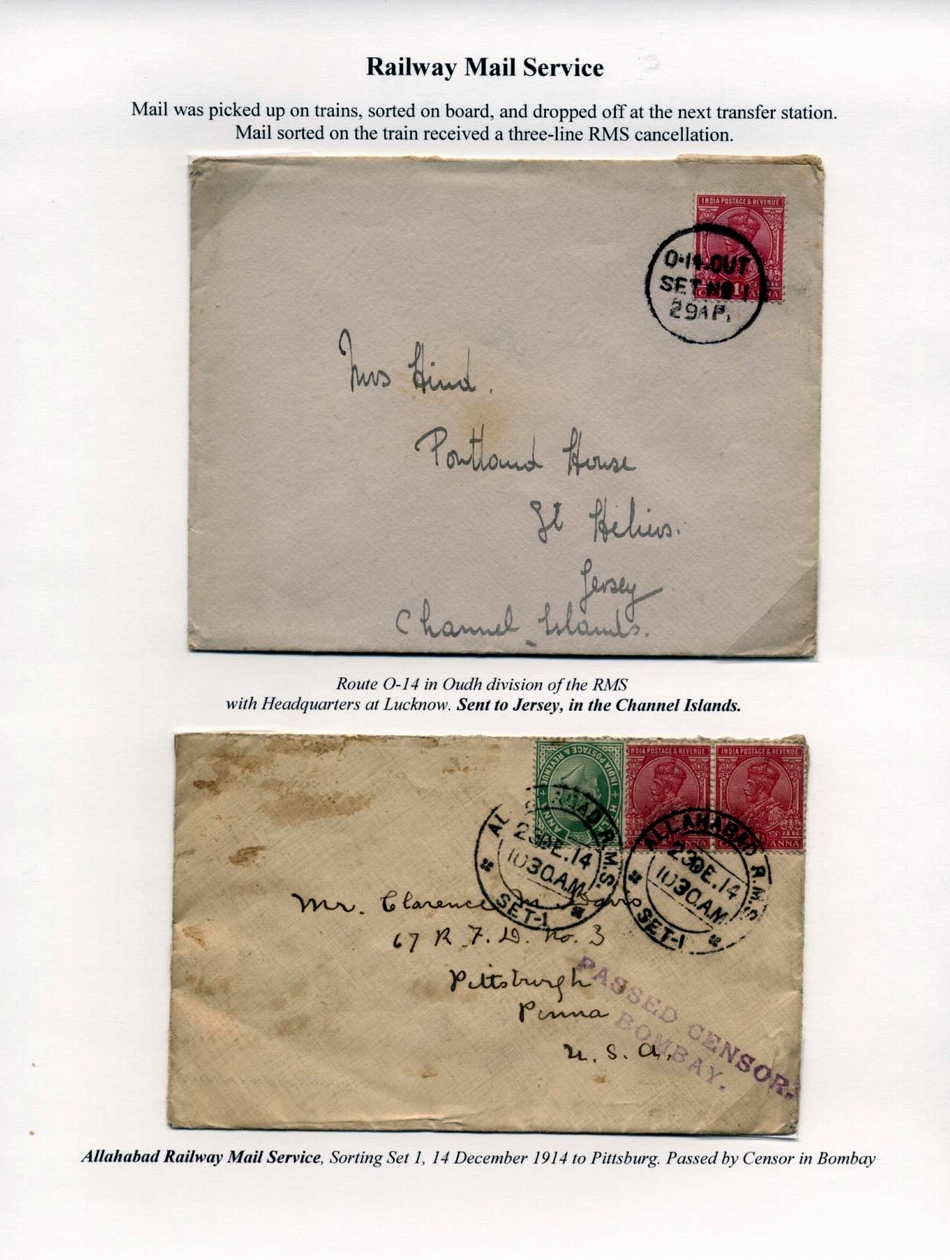 Railway Mail Service
Mail was picked up on trains, sorted on board, and dropped off at the next transfer station.
Mail sorted on the train received a three-line RMS cancellation.
INDIA POSTAGE & REVENUE
O-14-OUT
SET NO 1
29 AP.
Mrs Hind.
Portland House
St Heliers.
Jersey
Channel Islands.
Route O-14 in Oudh division of the RMS
with Headquarters at Lucknow. Sent to Jersey, in the Channel Islands.
INDIA POSTAGE & REVENUE
INDIA POSTAGE & REVENUE
INDIA POSTAGE & REVENUE
R.M.S.
23DE.14
10 30AM
SET-1
ALLAHABAD R.M.S.
23DE.14
10 30AM
SET-1
Mr. Clarence M. Davis
67 R. F. D. No. 3
Pittsburgh
Penna
U. S. A.
PASSED CENSOR.
BOMBAY.
Allahabad Railway Mail Service, Sorting Set 1, 14 December 1914 to Pittsburg. Passed by Censor in Bombay